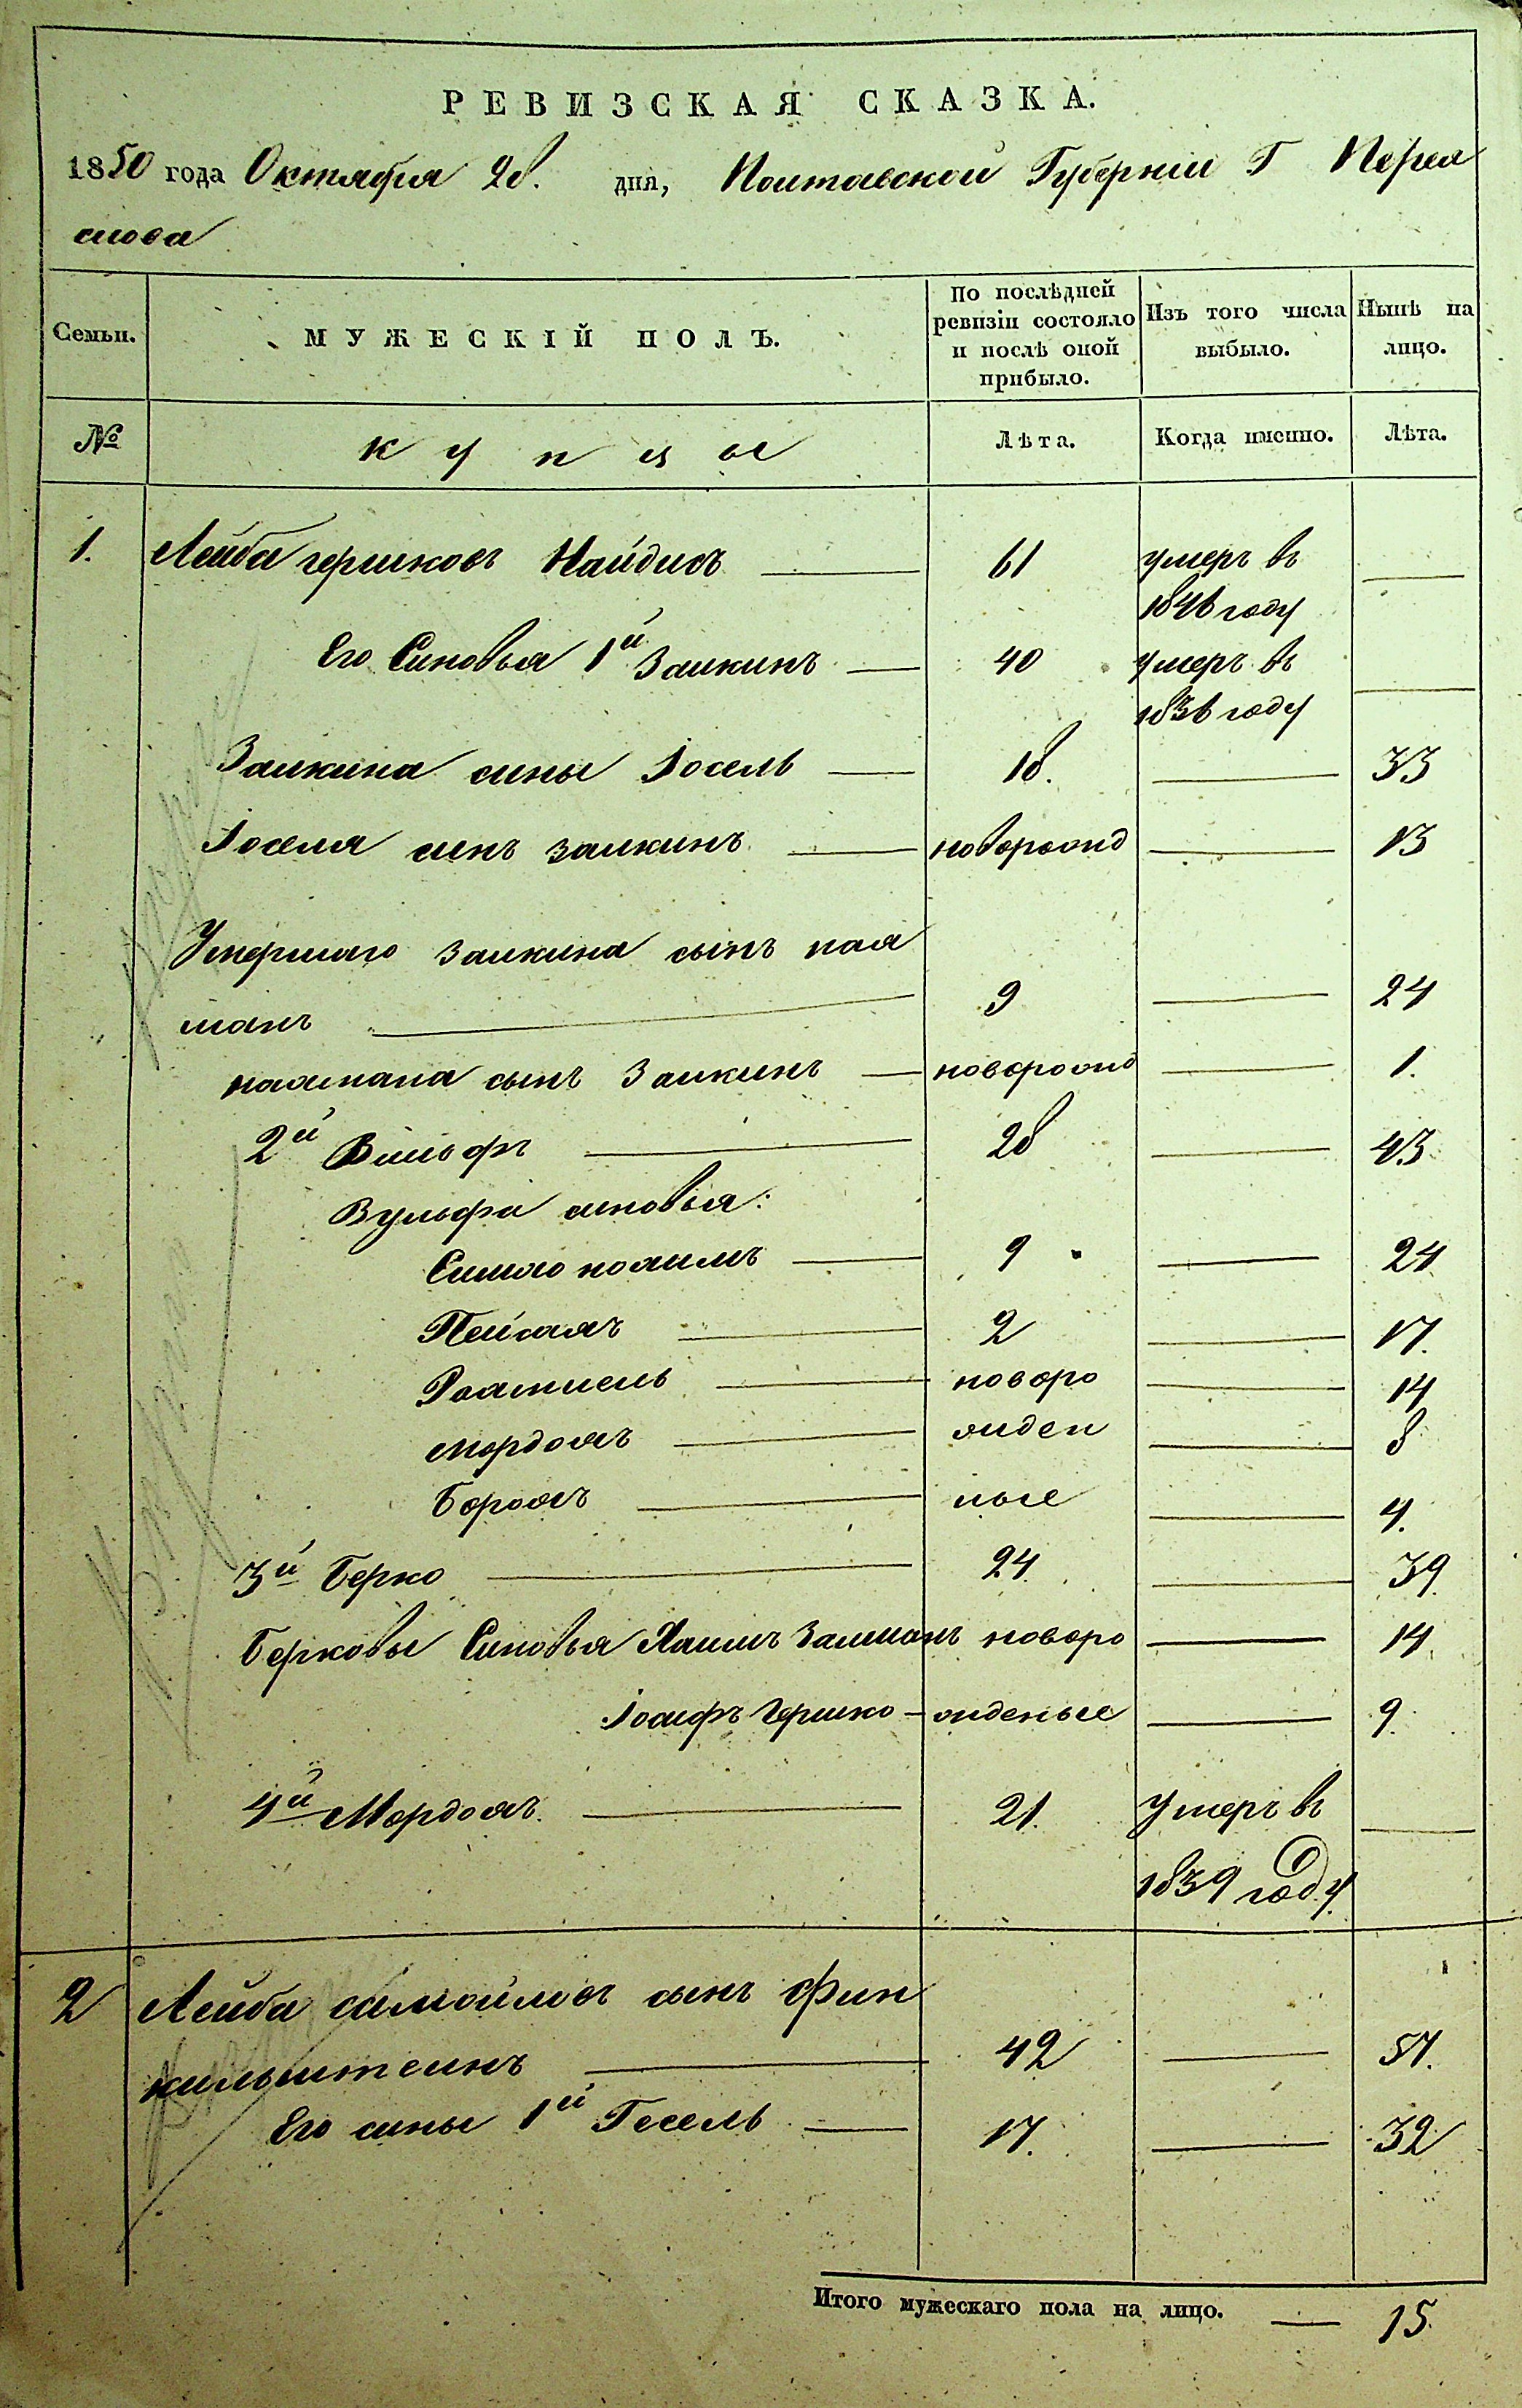 РЕВИЗСКАЯ СКАЗКА.
1850 года Октября 28. дня, Полтавской Губерніи Г Перея
слова
Семьи.
МУЖЕСКІЙ ПОЛЪ.
По послѣдней
ревизіи состояло
и послѣ оной
прибыло.
Изъ того числа
выбыло.
Нынѣ на
лицо.
№
купцы
Лѣта.
Когда именно.
Лѣта.
1. Лейба гершковъ Найдисъ 61 умеръ въ
1846 году
Его Синовья 1й Залкинъ 40 умеръ въ
1836 году
Залкина сины Іосель 18. 33
Іоселя синъ залкинъ новорожд 13
Умершаго залкина сынъ нах
манъ 9 24
нахмана сынъ Залкинъ новорожд 1.
2й Вильфъ 28 43
Вульфа синовья:
Симхо нохимъ 9 24
Пейсахъ 2 17.
Рахмиель новоро 14
мордохъ жден 8
Борохъ ные 4.
3й Берко 24 39
Берковы Синовья Хаимъ Залманъ новоро 14
Іосифъ Гершко жденые 9.
4й Мордохъ 21. Умеръ въ
1839 году
2 Лейба самойловъ сынъ Фин
кильштеинъ 42 57.
Его сины 1й Гесель 17. 32
Итого мужескаго пола на лицо. 15.